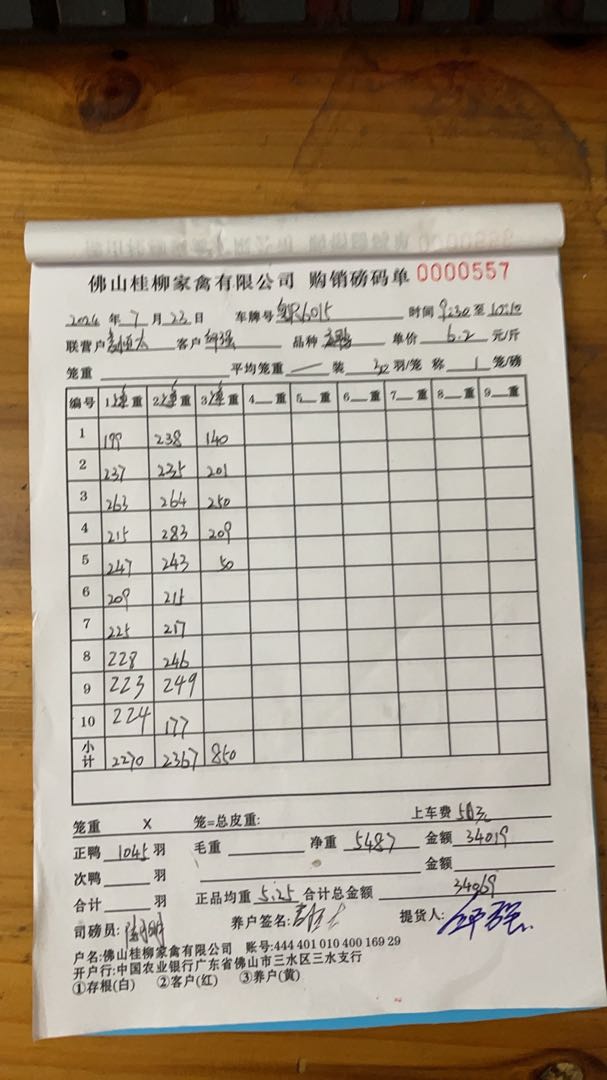 佛山桂柳家禽有限公司 购销磅码单 0000557
2024 年 7 月 23 日 车牌号 R6015 时间 9:30 至 10:10
联营户 客户 强 品种 鸭 单价 6.2 元/斤
笼重 平均笼重 — 装 羽/笼 称 1 笼/磅
编号 1 重 2 重 3 重 4 重 5 重 6 重 7 重 8 重 9 重
1 199 238 140
2 237 235 201
3 263 264 250
4 215 283 209
5 247 243 50
6 209 215
7 225 217
8 228 246
9 223 249
10 224 177
小计 2270 2367 850
笼重 X 笼=总皮重: 上车费 50元
正鸭 1045 羽 毛重 净重 5487 金额 34019
次鸭 羽 金额
合计 羽 正品均重 5.25 合计总金额 34069
司磅员: 养户签名: 提货人: 强
户名:佛山桂柳家禽有限公司 账号:444 401 010 400 169 29
开户行:中国农业银行广东省佛山市三水区三水支行
①存根(白) ②客户(红) ③养户(黄)